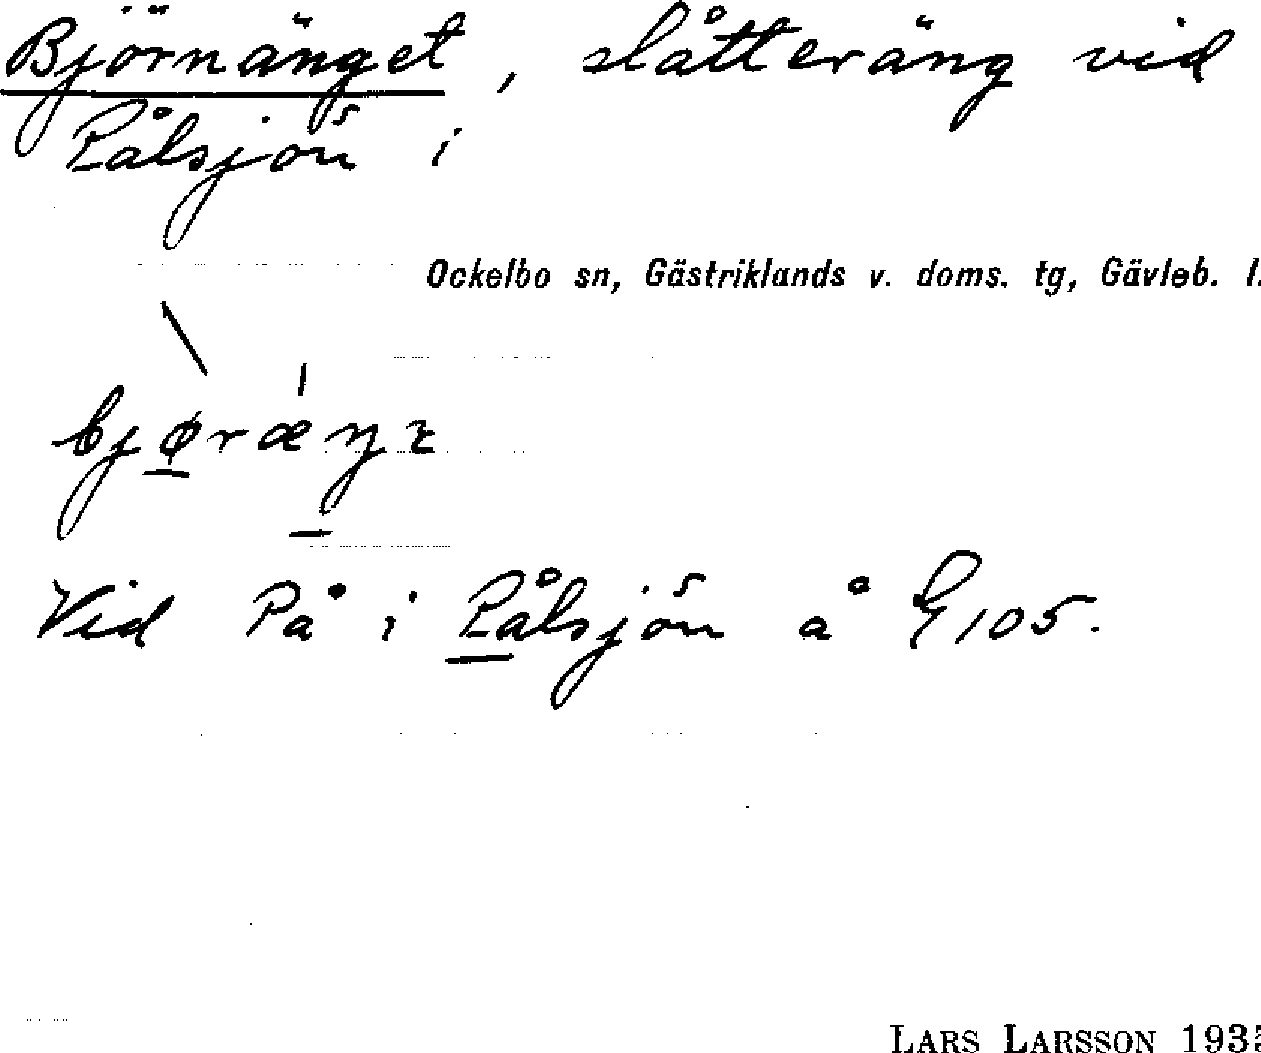 Björnänget, slåtteräng vid
Rålsjön i
Ockelbo sn, Gästriklands v. doms. tg, Gävleb. l.
Vid Rå i Rålsjön å G105.
LARS LARSSON 193